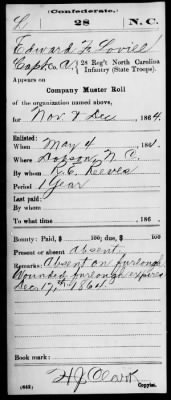 (Confederate.)
L 28 N. C.
Edward F. Lovill
Capt. Co. A, 28 Reg't North Carolina
Infantry (State Troops).
Appears on
Company Muster Roll
of the organization named above,
for Nov. & Dec , 1864.
Enlisted:
When May 4 , 1861.
Where Dobson, N. C.
By whom R. E. Reeves
Period 1 Year
Last paid:
By whom
To what time , 186 .
Bounty: Paid, $ 100; due, $ 100
Present or absent Absent,
Remarks: Absent on furlough,
Wounded, furlough expires
Dec. 17th 1864.
Book mark:
H J Clark
(642) Copyist.